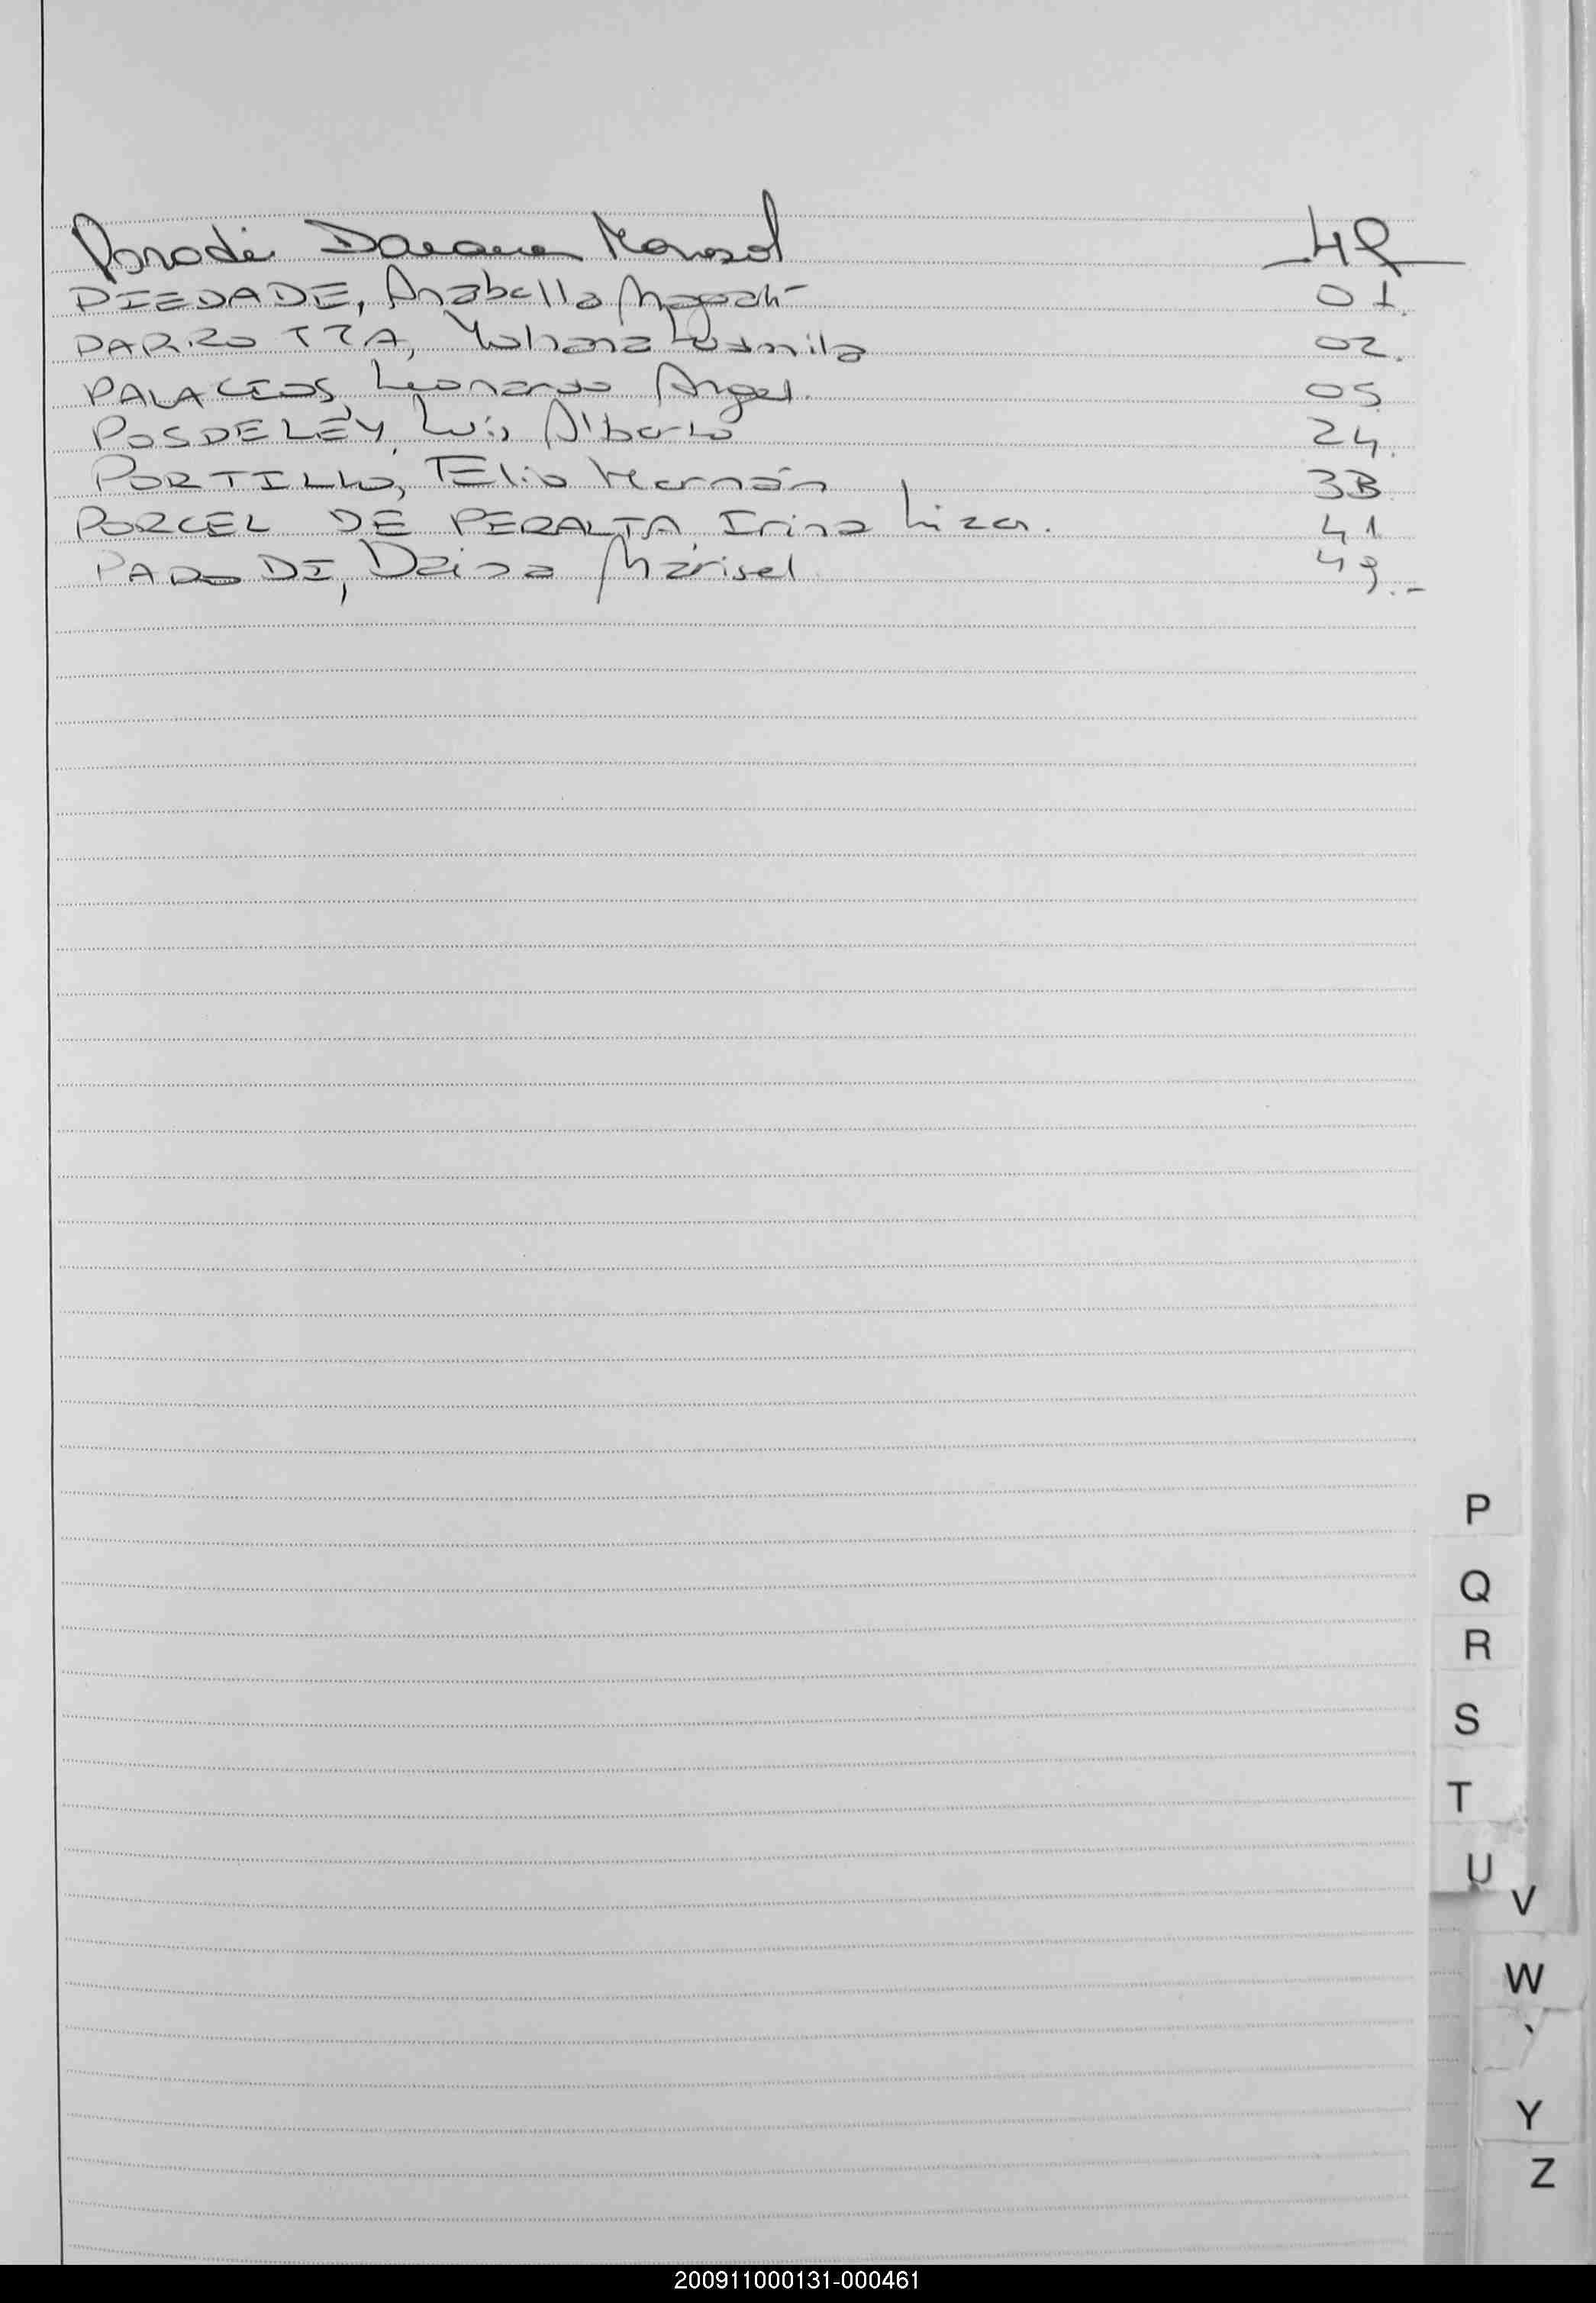 Parodi Daiana Marisol 49
PIEDADE, Anabella Magali 01.
PARROTTA, Yohana Ludmila 02.
PALACIOS, Leonardo Angel. 05
POSDELEY, Luis Alberto 24.
PORTILLO, Elio Hernán 38
PORCEL DE PERALTA, Irina Liza. 41
PARODI, Daina Marisel 49.-
P
Q
R
S
T
U
V
W
Y
Z
200911000131-000461